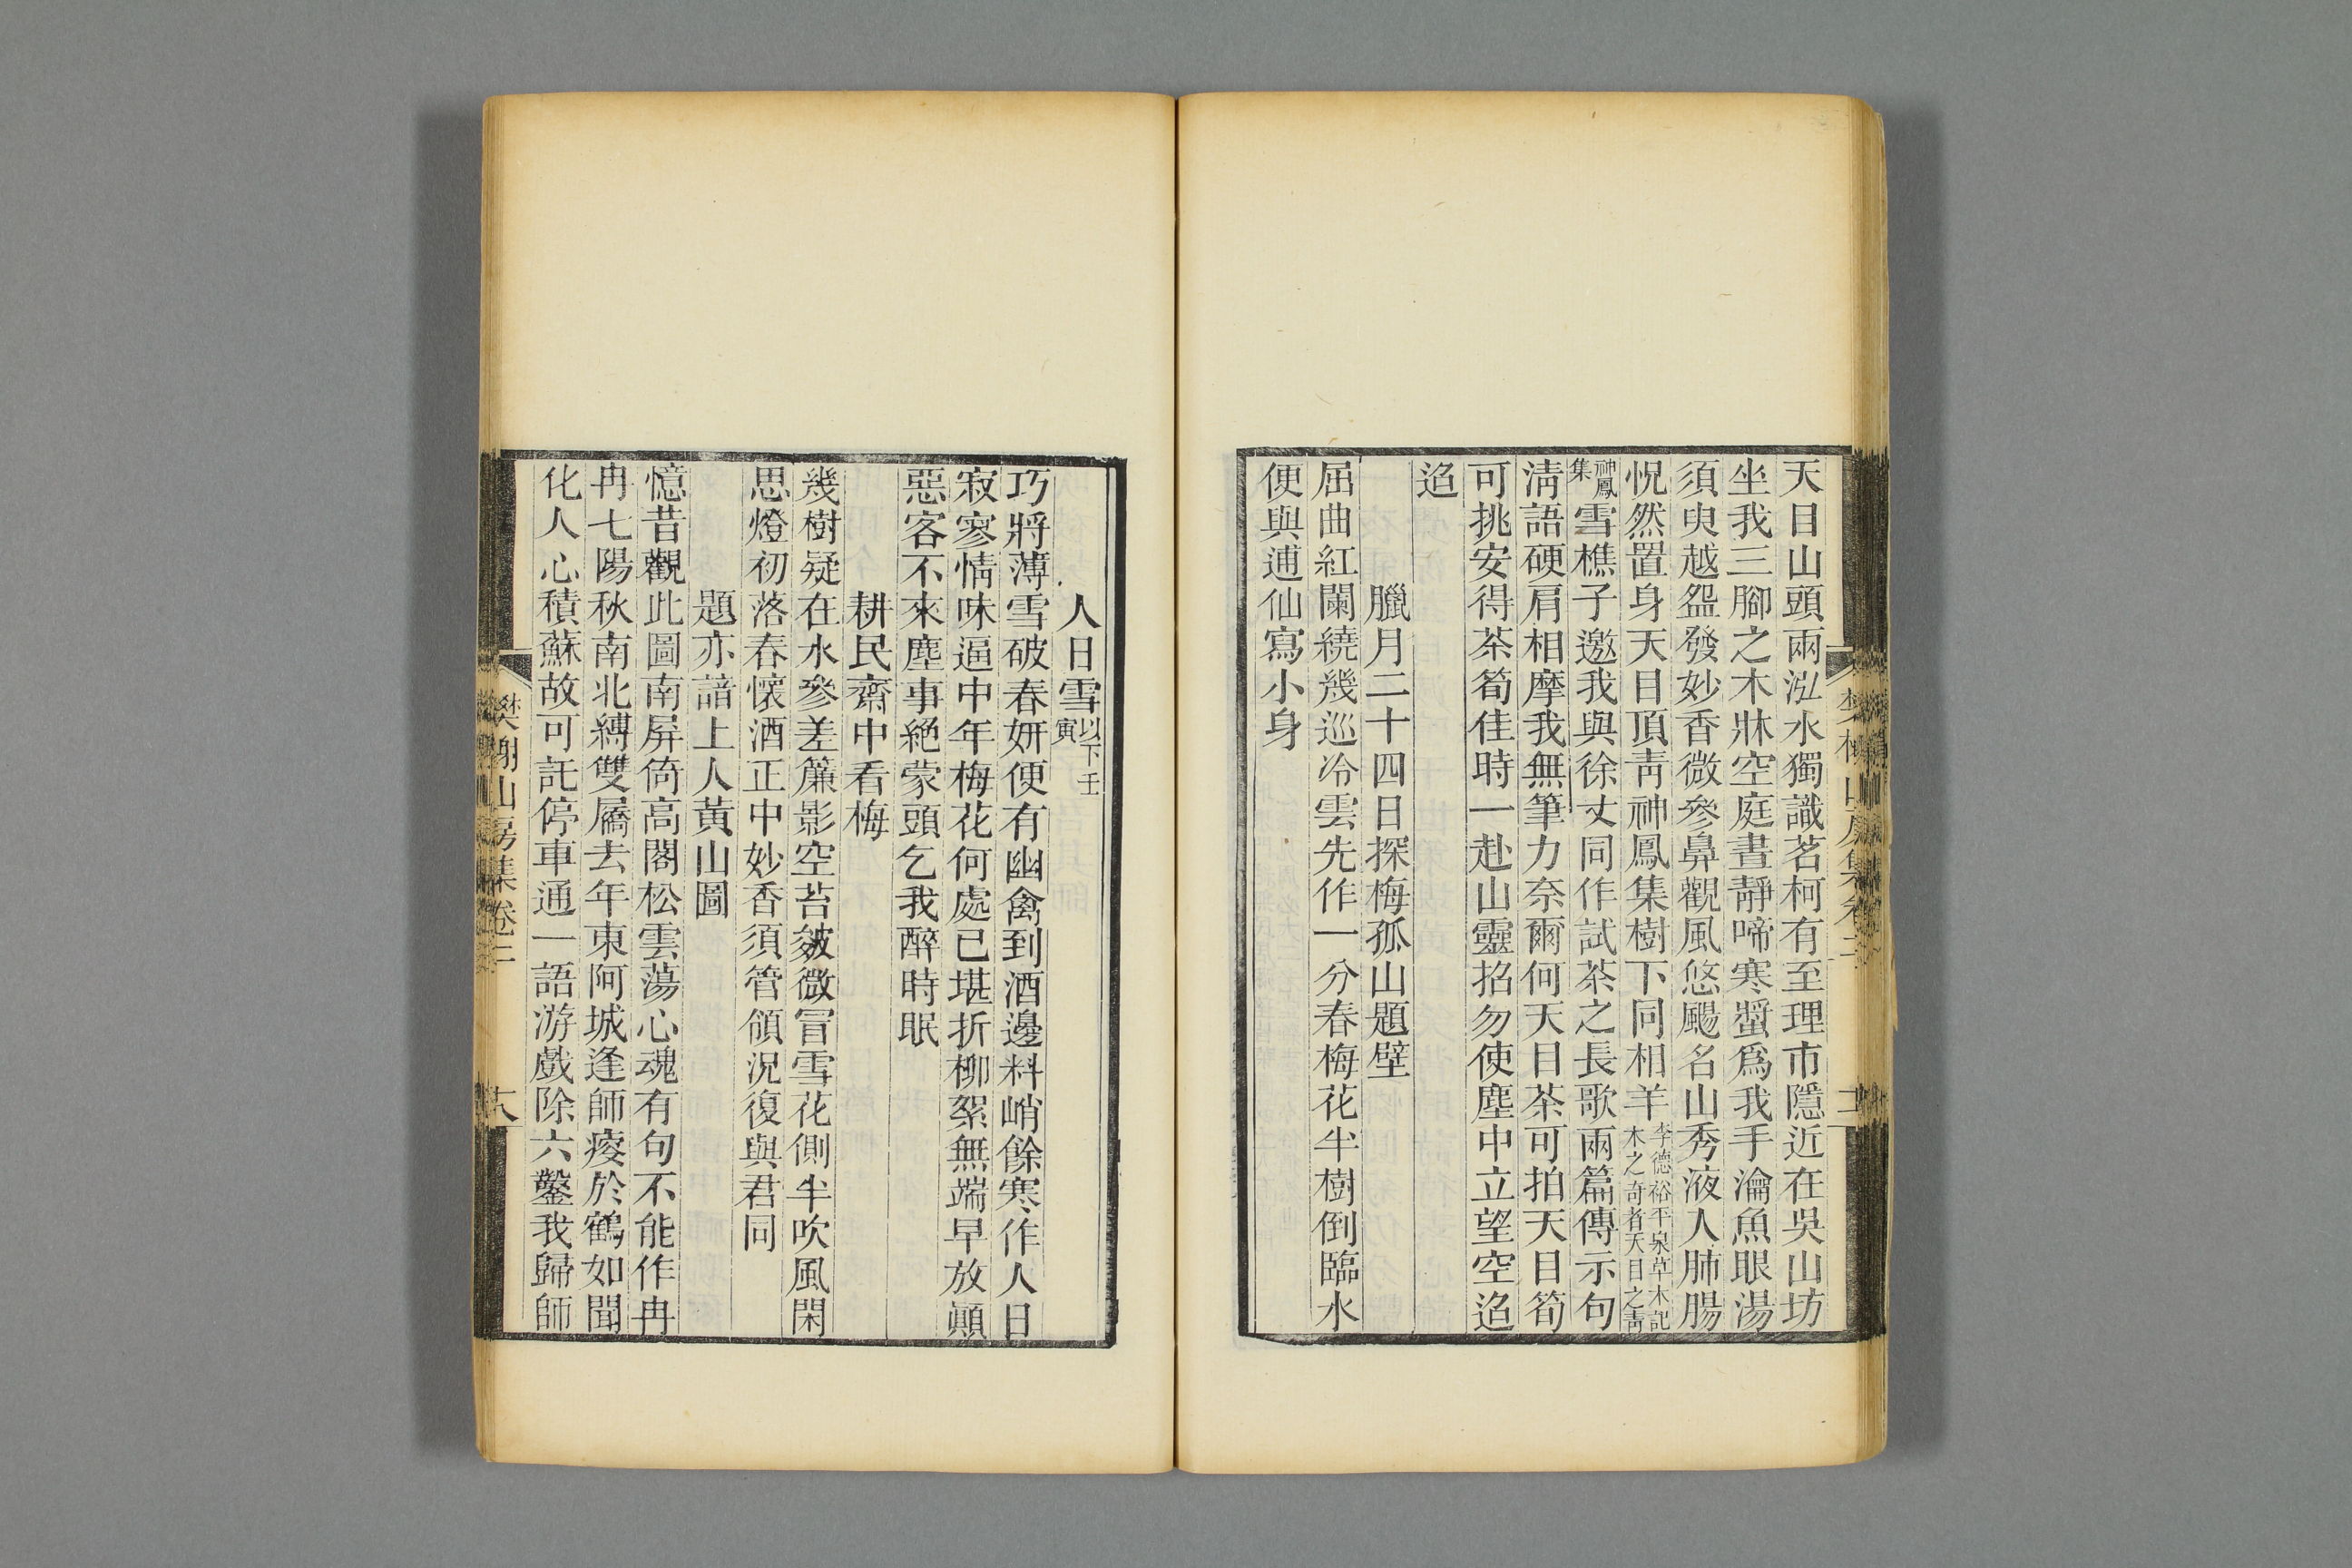 天目山頭兩泓水獨識茗柯有至理市隱近在吳山坊
坐我三腳之木牀空庭晝靜啼寒螿爲我手瀹魚眼湯
須臾越盌發妙香微參鼻觀風悠颺名山秀液人肺腸
怳然置身天目頂靑神鳳集樹下同相羊李德裕平泉草木記木之奇者天目之靑
神鳳集雪樵子邀我與徐丈同作試茶之長歌兩篇傳示句
淸語硬肩相摩我無筆力奈爾何天目茶可拍天目筍
可挑安得茶筍佳時一赴山靈招勿使塵中立望空迢
迢
臘月二十四日探梅孤山題壁
屈曲紅闌繞幾巡冷雲先作一分春梅花半樹倒臨水
便與逋仙寫小身
人日雪以下壬寅
巧將薄雪破春妍便有幽禽到酒邊料峭餘寒作人日
寂寥情味逼中年梅花何處已堪折柳絮無端早放顚
惡客不來塵事絕蒙頭乞我醉時眠
耕民齋中看梅
幾樹疑在水參差簾影空苔皴微冒雪花側半吹風閑
思燈初落春懷酒正中妙香須管領況復與君同
題亦諳上人黃山圖
憶昔觀此圖南屛倚高閣松雲蕩心魂有句不能作冉
冉七陽秋南北縛雙屩去年東阿城逢師瘦於鶴如聞
化人心積蘇故可託停車通一語游戲除六鑿我歸師
樊榭山房集卷三